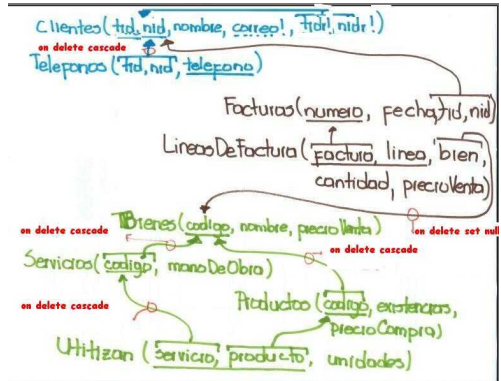 Clientes(tid, nid, nombre, correo!, tidr!, nidr!)
on delete cascade
Telefonos(tid, nid, telefono)
Facturas(numero, fecha, tid, nid)
LineasDeFactura(factura, linea, bien,
cantidad, precioVenta)
Bienes(codigo, nombre, precioVenta)
on delete cascade
on delete set null
on delete cascade
Servicios(codigo, manoDeObra)
on delete cascade
Productos(codigo, existencias,
precioCompra)
Utilizan(servicio, producto, unidades)